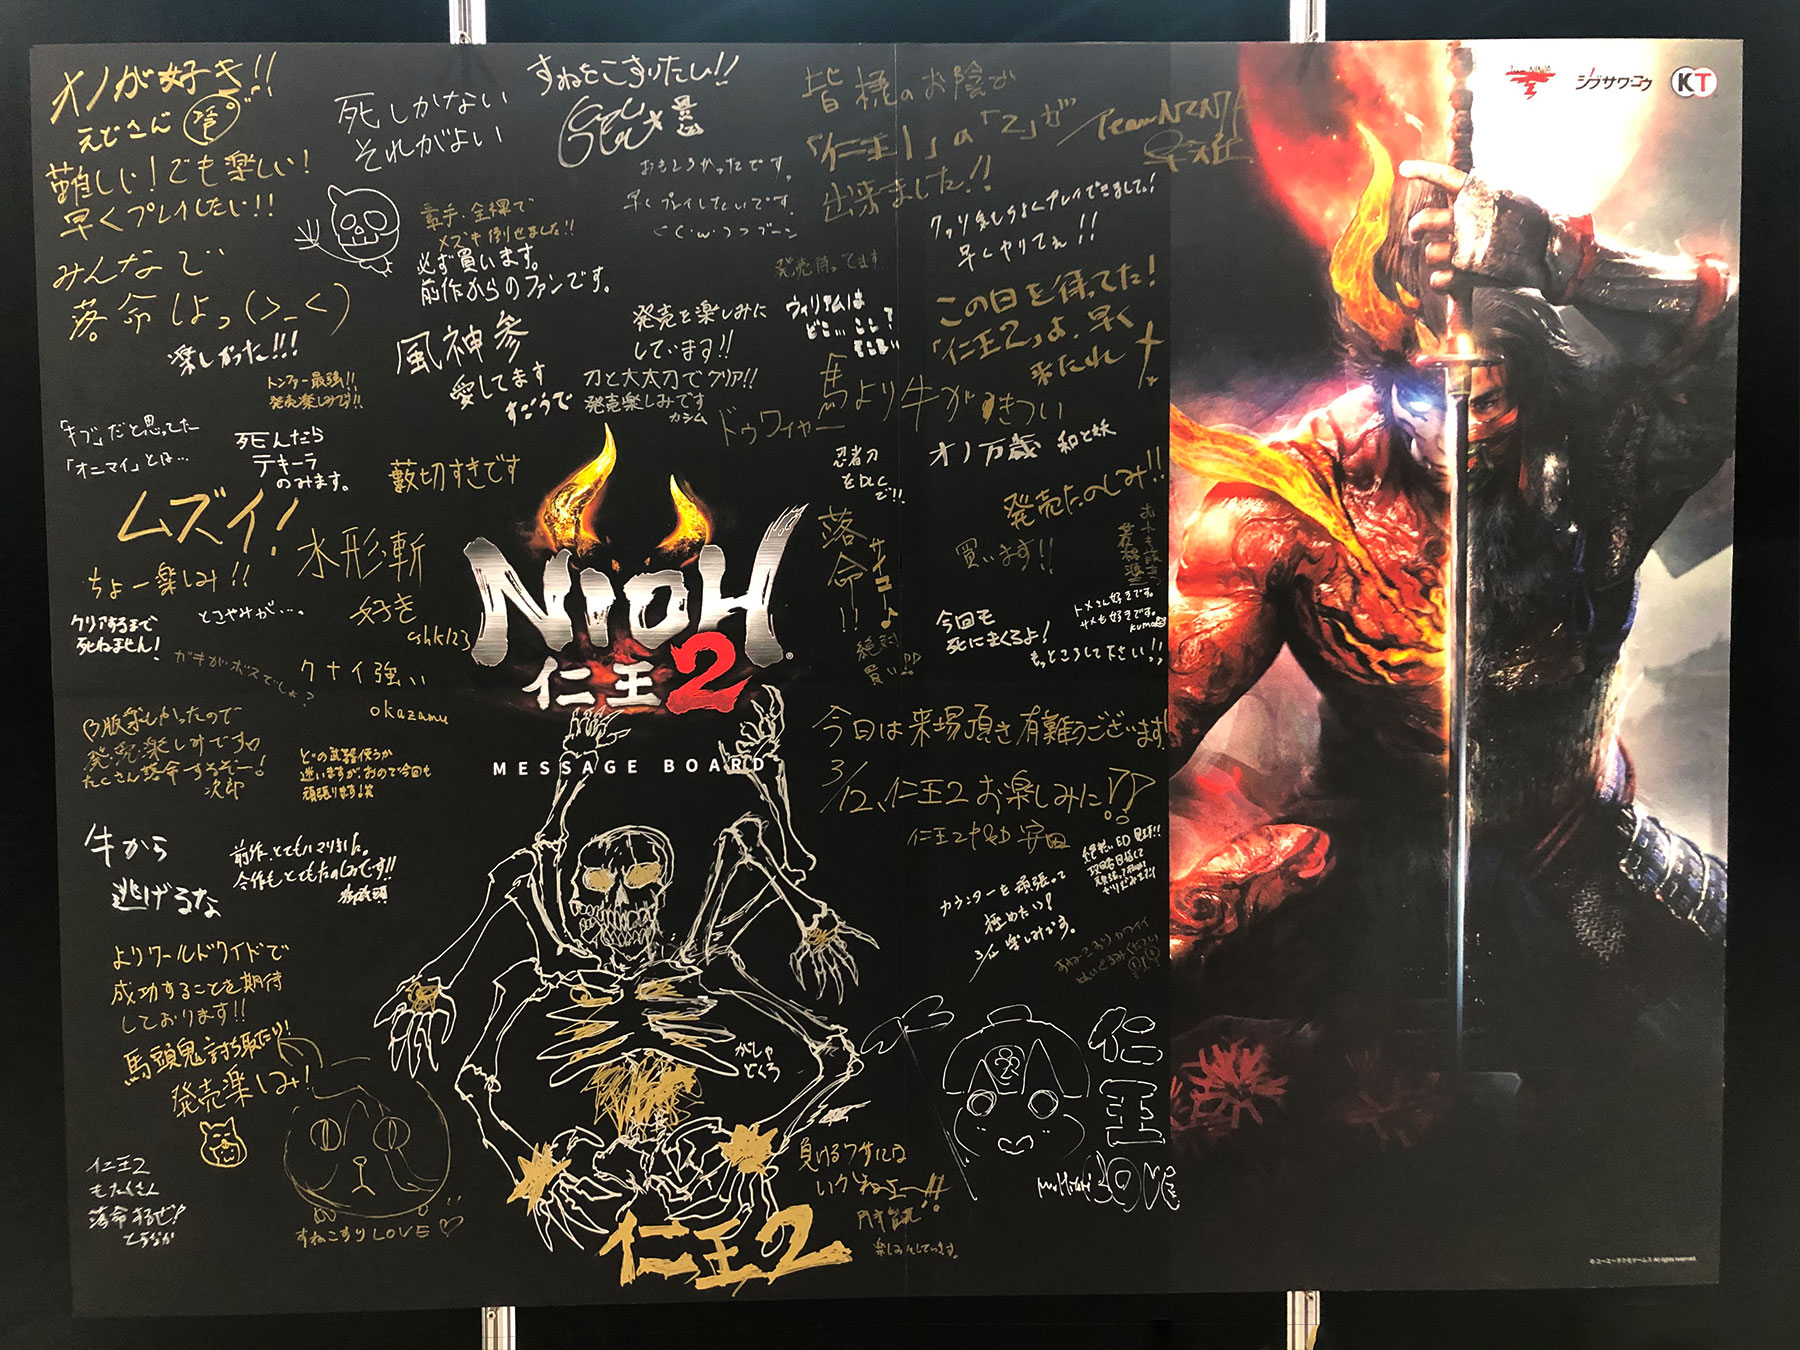 オノが好き!!
えどさん
難しい!でも楽しい!
早くプレイしたい!!
みんなで
落命しよっ(>_<)
楽しかった!!!
トンファー最強!!
発売楽しみです!!
死しかない
それがよい
すねをこすりたい!!
素手・全裸で
メズキ倒せました!!
必ず買います。
前作からのファンです。
おもしろかったです。
早くプレイしたいです。
風神参
愛してます
すごうで
発売を楽しみに
しています!!
刀と大太刀でクリア!!
発売楽しみです
カシム
皆様のお陰で
「仁王1」の「2」が
出来ました!!
Team NINJA
発売待ってます
ウィリアムは
どこ…ここ?
早くやりてぇ!!
この日を待ってた!
「仁王2」よ、早く
来たれ
馬より牛がきつい
ドゥワィヤー
オノ万歳 和と妖
忍者刀
をDLC
で!!
発売たのしみ!!
買います!!
落命!!
サイコー♪
絶対
買い!!
今回も
死にまくるよ!
もっところして下さい!!
トメさん好きです。
サメも好きです。
kuma
「キブ」だと思ってた
「オニマイ」とは…
死んだら
テキーラ
のみます。
藪切すきです
ムズイ!
ちょー楽しみ!!
水形斬
好き
cshk123
クリアするまで
死ねません!
とこやみが・・・。
ガキがボスでしょ?
クナイ強い
okazamu
β版楽しかったので
発売楽しみです
たくさん落命するぞー!
次郎
どの武器使うか
迷いますが、おので今回も
頑張ります!笑
NIOH
仁王2
MESSAGE BOARD
今日は来場頂き有難うございます!
3/12、仁王2お楽しみに!?
安田
牛から
逃げるな
前作、とてもハマりました。
今作もとてもたのしみです!!
カウンターを頑張って
極めたい!
3/12 楽しみです。
よりワールドワイドで
成功することを期待
しております!!
馬頭鬼討ち取たり!
発売楽しみ!
がしゃ
どくろ
仁王2
もたくさん
落命するぜ!
すねこすりLOVE♡
負けるワケには
いかねェー!!
楽しみにしてます。
仁王2
仁王
LOVE
シブサワ・コウ
KT
© コーエーテクモゲームス All rights reserved.